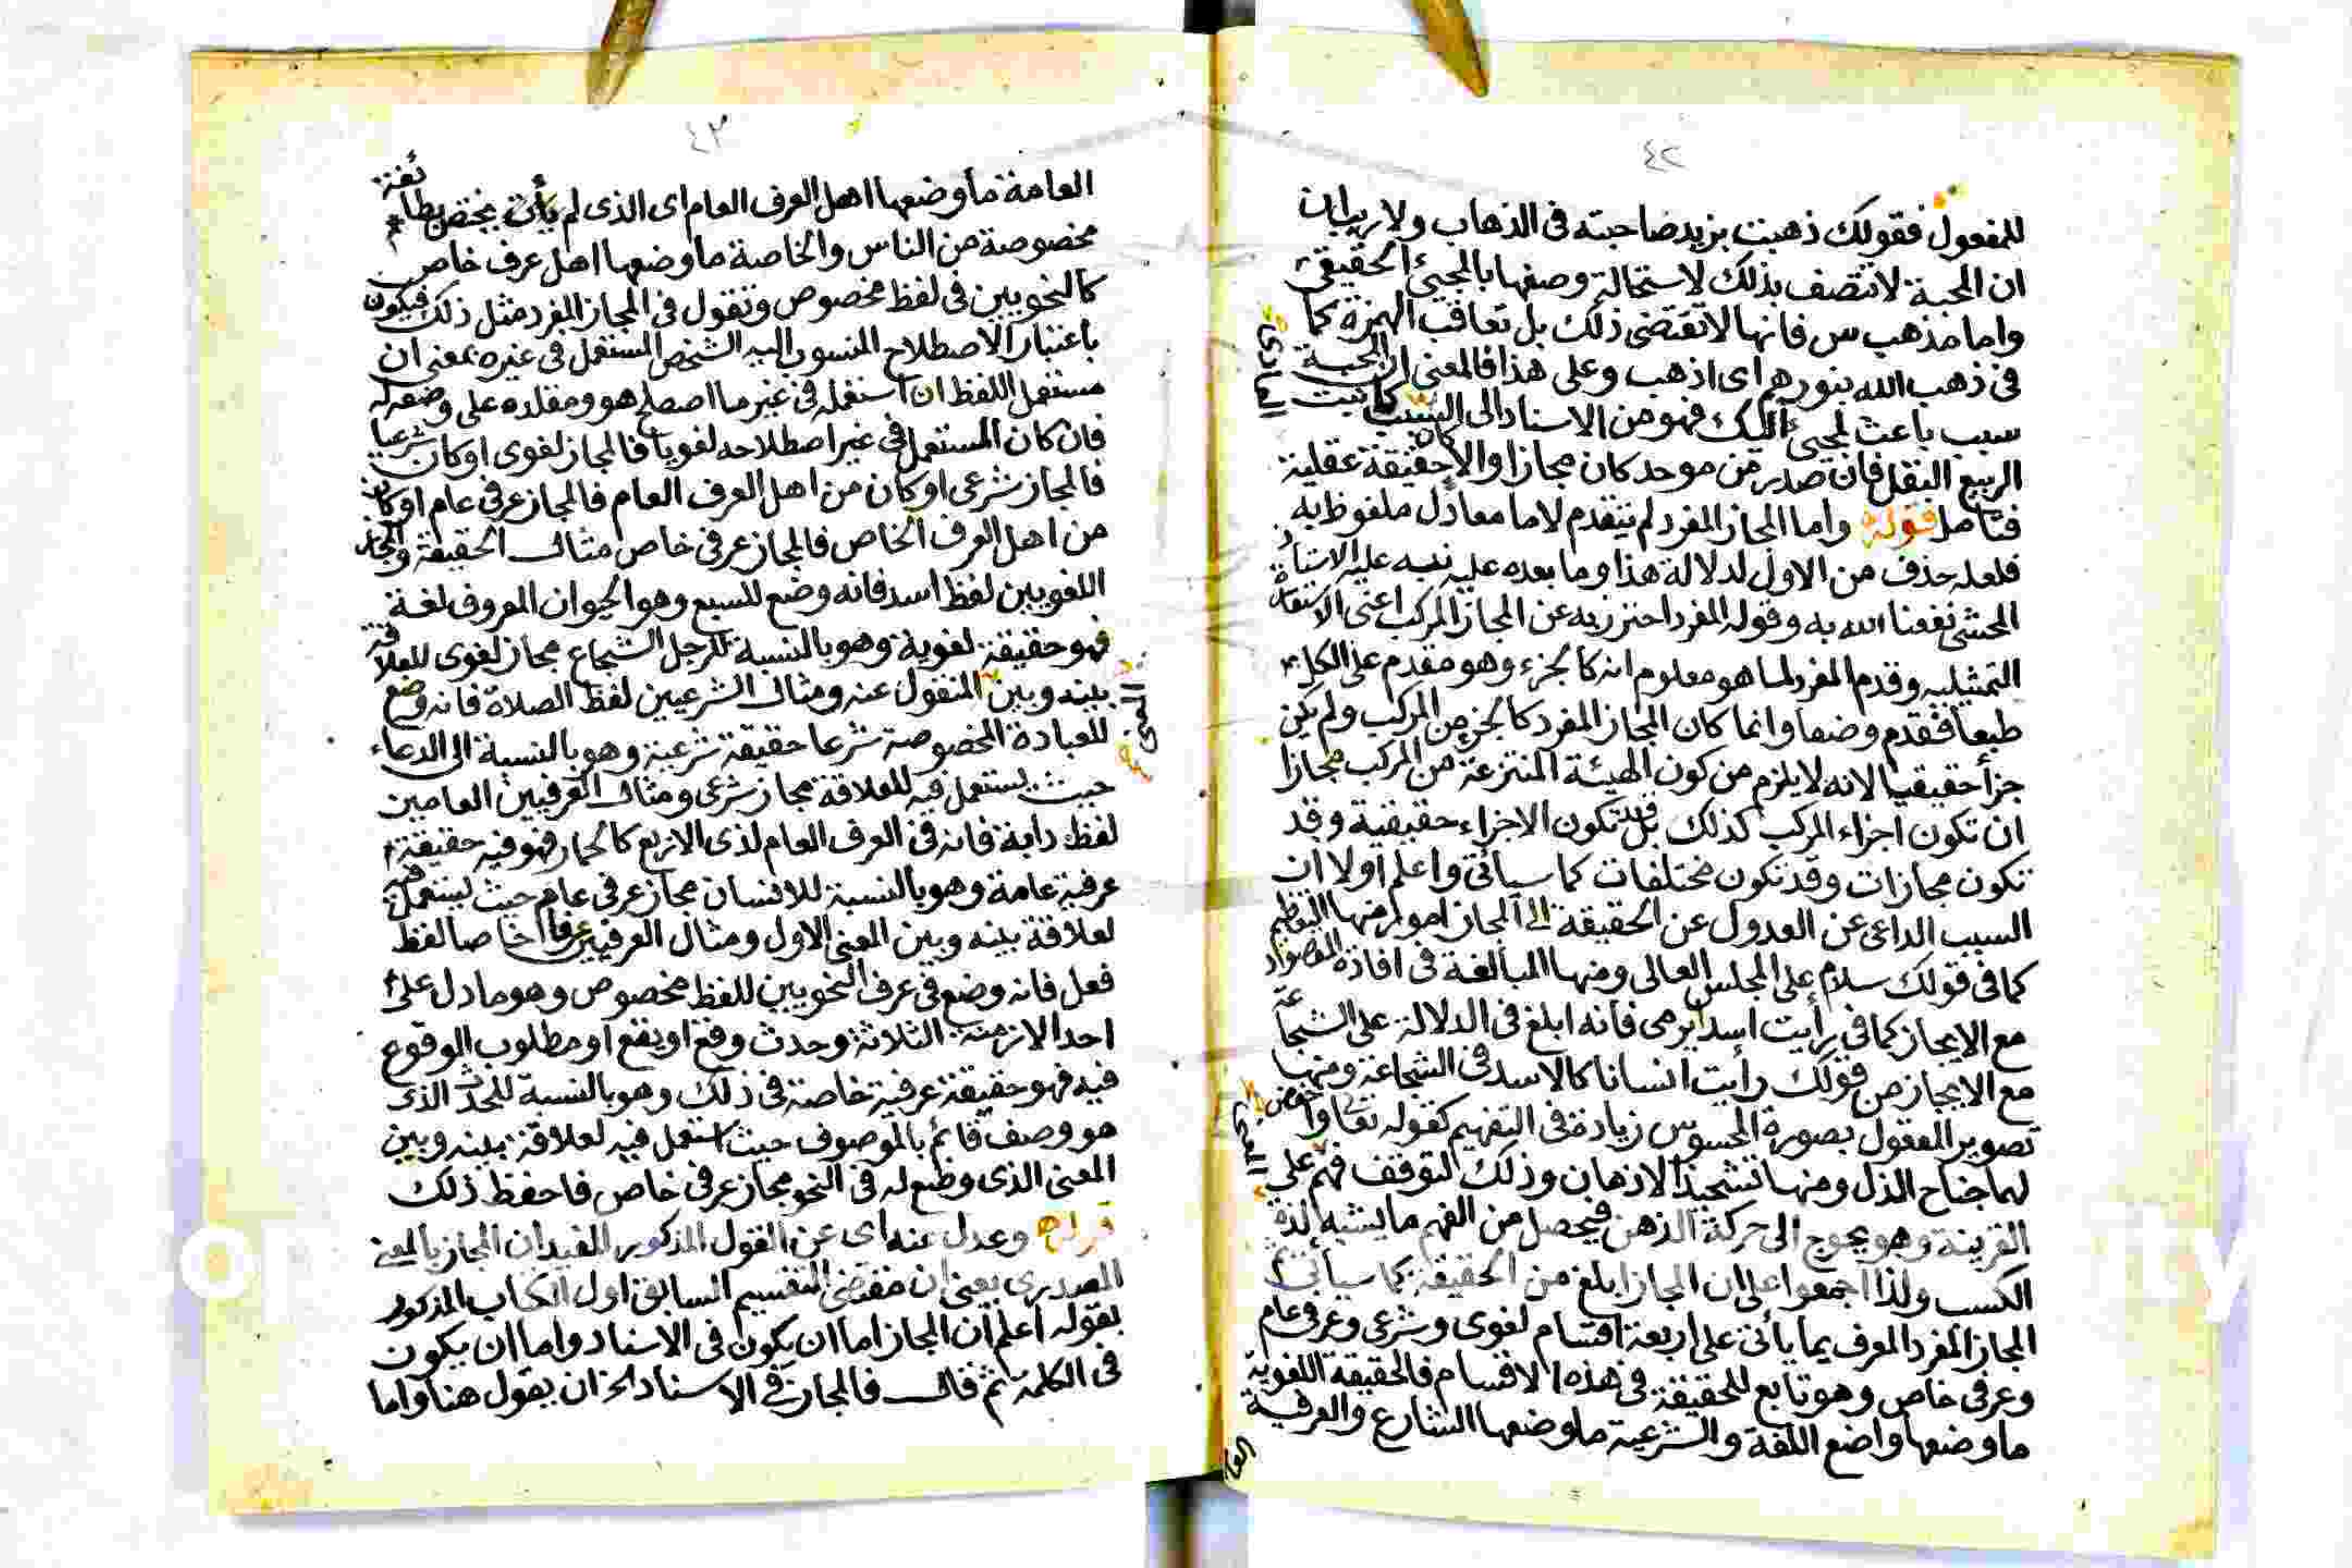 ٤٢
للمفعول فقولك ذهبت بزيد صاحبته فى الذهاب ولا ريب ان
ان المحبة لا تتصف بذلك لاستحالة وصفها بالمجئ الحقيقى
واما مذهب س فانها لا تقتضى ذلك بل تعاقب الهمزة كما
فى ذهب الله بنورهم اى اذهب وعلى هذا فالمعنى ان المحبة
سبب باعث لمجئ اليك فهو من الاسناد الى السبب كانبت
الربيع البقل فان صدر من موحد كان مجازا والا كان حقيقة عقلية
فتامل قوله واما المجاز المفرد لم يتقدم لاما معادل ملفوظ به
فلعله حذف من الاول لدلالة هذا وما بعده عليه نبه عليه الاستاذ
المحشى نفعنا الله به وقوله المفرد احترز به عن المجاز المركب اعنى الاستعارة
التمثيليه وقدم المفرد لما هو معلوم انه كالجزء وهو مقدم على الكل
طبعا فقدم وضعا وانما كان المجاز المفرد كالجزء من المركب ولم يكن
جزأ حقيقيا لانه لا يلزم من كون الهيئة المنتزعة من المركب مجازا
ان تكون اجزاء المركب كذلك بل قد تكون الاجزاء حقيقية وقد
تكون مجازات وقد تكون مختلفات كما سياتى واعلم اولا ان
السبب الداعى عن العدول عن الحقيقة الى المجاز امور منها التعظيم
كما فى قولك سلام على المجلس العالى ومنها المبالغة فى افادة المقصود
مع الايجاز كما فى رأيت اسدا يرمى فانه ابلغ فى الدلالة على الشجاعة
مع الايجاز من قولك رأيت انسانا كالاسد فى الشجاعة ومنها
تصوير المعقول بصورة المحسوس زيادة فى التفهيم كقوله تعا واخفض
لهما جناح الذل ومنها تشحيذ الاذهان وذلك لتوقف فهم على
القرينة وهو يحوج الى حركة الذهن فيحصل من الفهم ما يشبه لذة
الكسب ولذا اجمعوا على ان المجاز ابلغ من الحقيقة كما سيأتى
المجاز المفرد المعرف بما يأتى على اربعة اقسام لغوى وشرعى وعرفى عام
وعرفى خاص وهو تابع للحقيقة فى هذه الاقسام فالحقيقة اللغوية
ما وضعها واضع اللغة والشرعية ما وضعها الشارع والعرفية
العا
٤٣
العامة ما وضعها اهل العرف العام اى الذى لم يختص بطائفة
مخصوصة من الناس والخاصة ما وضعها اهل عرف خاص
كالنحويين فى لفظ مخصوص وتقول فى المجاز المفرد مثل ذلك فيكون
باعتبار الاصطلاح المنسوب اليه الشخص المستعمل فى غيره بمعنى ان
مستعمل اللفظ ان استعمله فى غير ما اصطلح هو ومقلده على وضعه له
فان كان المستعمل فى غير اصطلاحه لغويا فالمجاز لغوى او كان شرعيا
فالمجاز شرعى او كان من اهل العرف العام فالمجاز عرفى عام او كان
من اهل العرف الخاص فالمجاز عرفى خاص مثال الحقيقة والمجاز
اللغويين لفظ اسد فانه وضع للسبع وهو الحيوان المعروف لغة
فهو حقيقة لغوية وهو بالنسبة للرجل الشجاع مجاز لغوى للعلاقة
بينه وبين المنقول عنه ومثال الشرعيين لفظ الصلاة فانه وضع
للعبادة المخصوصة شرعا حقيقة شرعية وهو بالنسبة الى الدعاء
حيث يستعمل فيه للعلاقة مجاز شرعى ومثال العرفيين العامين
لفظ دابة فانه فى العرف العام لذى الاربع كالحمار فهو فيه حقيقة
عرفية عامة وهو بالنسبة للانسان مجاز عرفى عام حيث يستعمل فيه
لعلاقة بينه وبين المعنى الاول ومثال العرفيين عرفا خاصا لفظ
فعل فانه وضع فى عرف النحويين للفظ مخصوص وهو ما دل على
احد الازمنة الثلاثة وحدث وقع او يقع او مطلوب الوقوع
فيه فهو حقيقة عرفية خاصة فى ذلك وهو بالنسبة للحدث الذى
هو وصف قائم بالموصوف حيث استعمل فيه لعلاقة بينه وبين
المعنى الذى وضع له فى النحو مجاز عرفى خاص فاحفظ ذلك
قوله وعدل عنه اى عن القول المذكور المفيد ان المجاز بالمعنى
المصدرى يعنى ان مقتضى التقسيم السابق اول الكتاب المذكور
بقوله اعلم ان المجاز اما ان يكون فى الاسناد واما ان يكون
فى الكلمة ثم قال فالمجاز فى الاسناد الخ ان يقول هنا واما